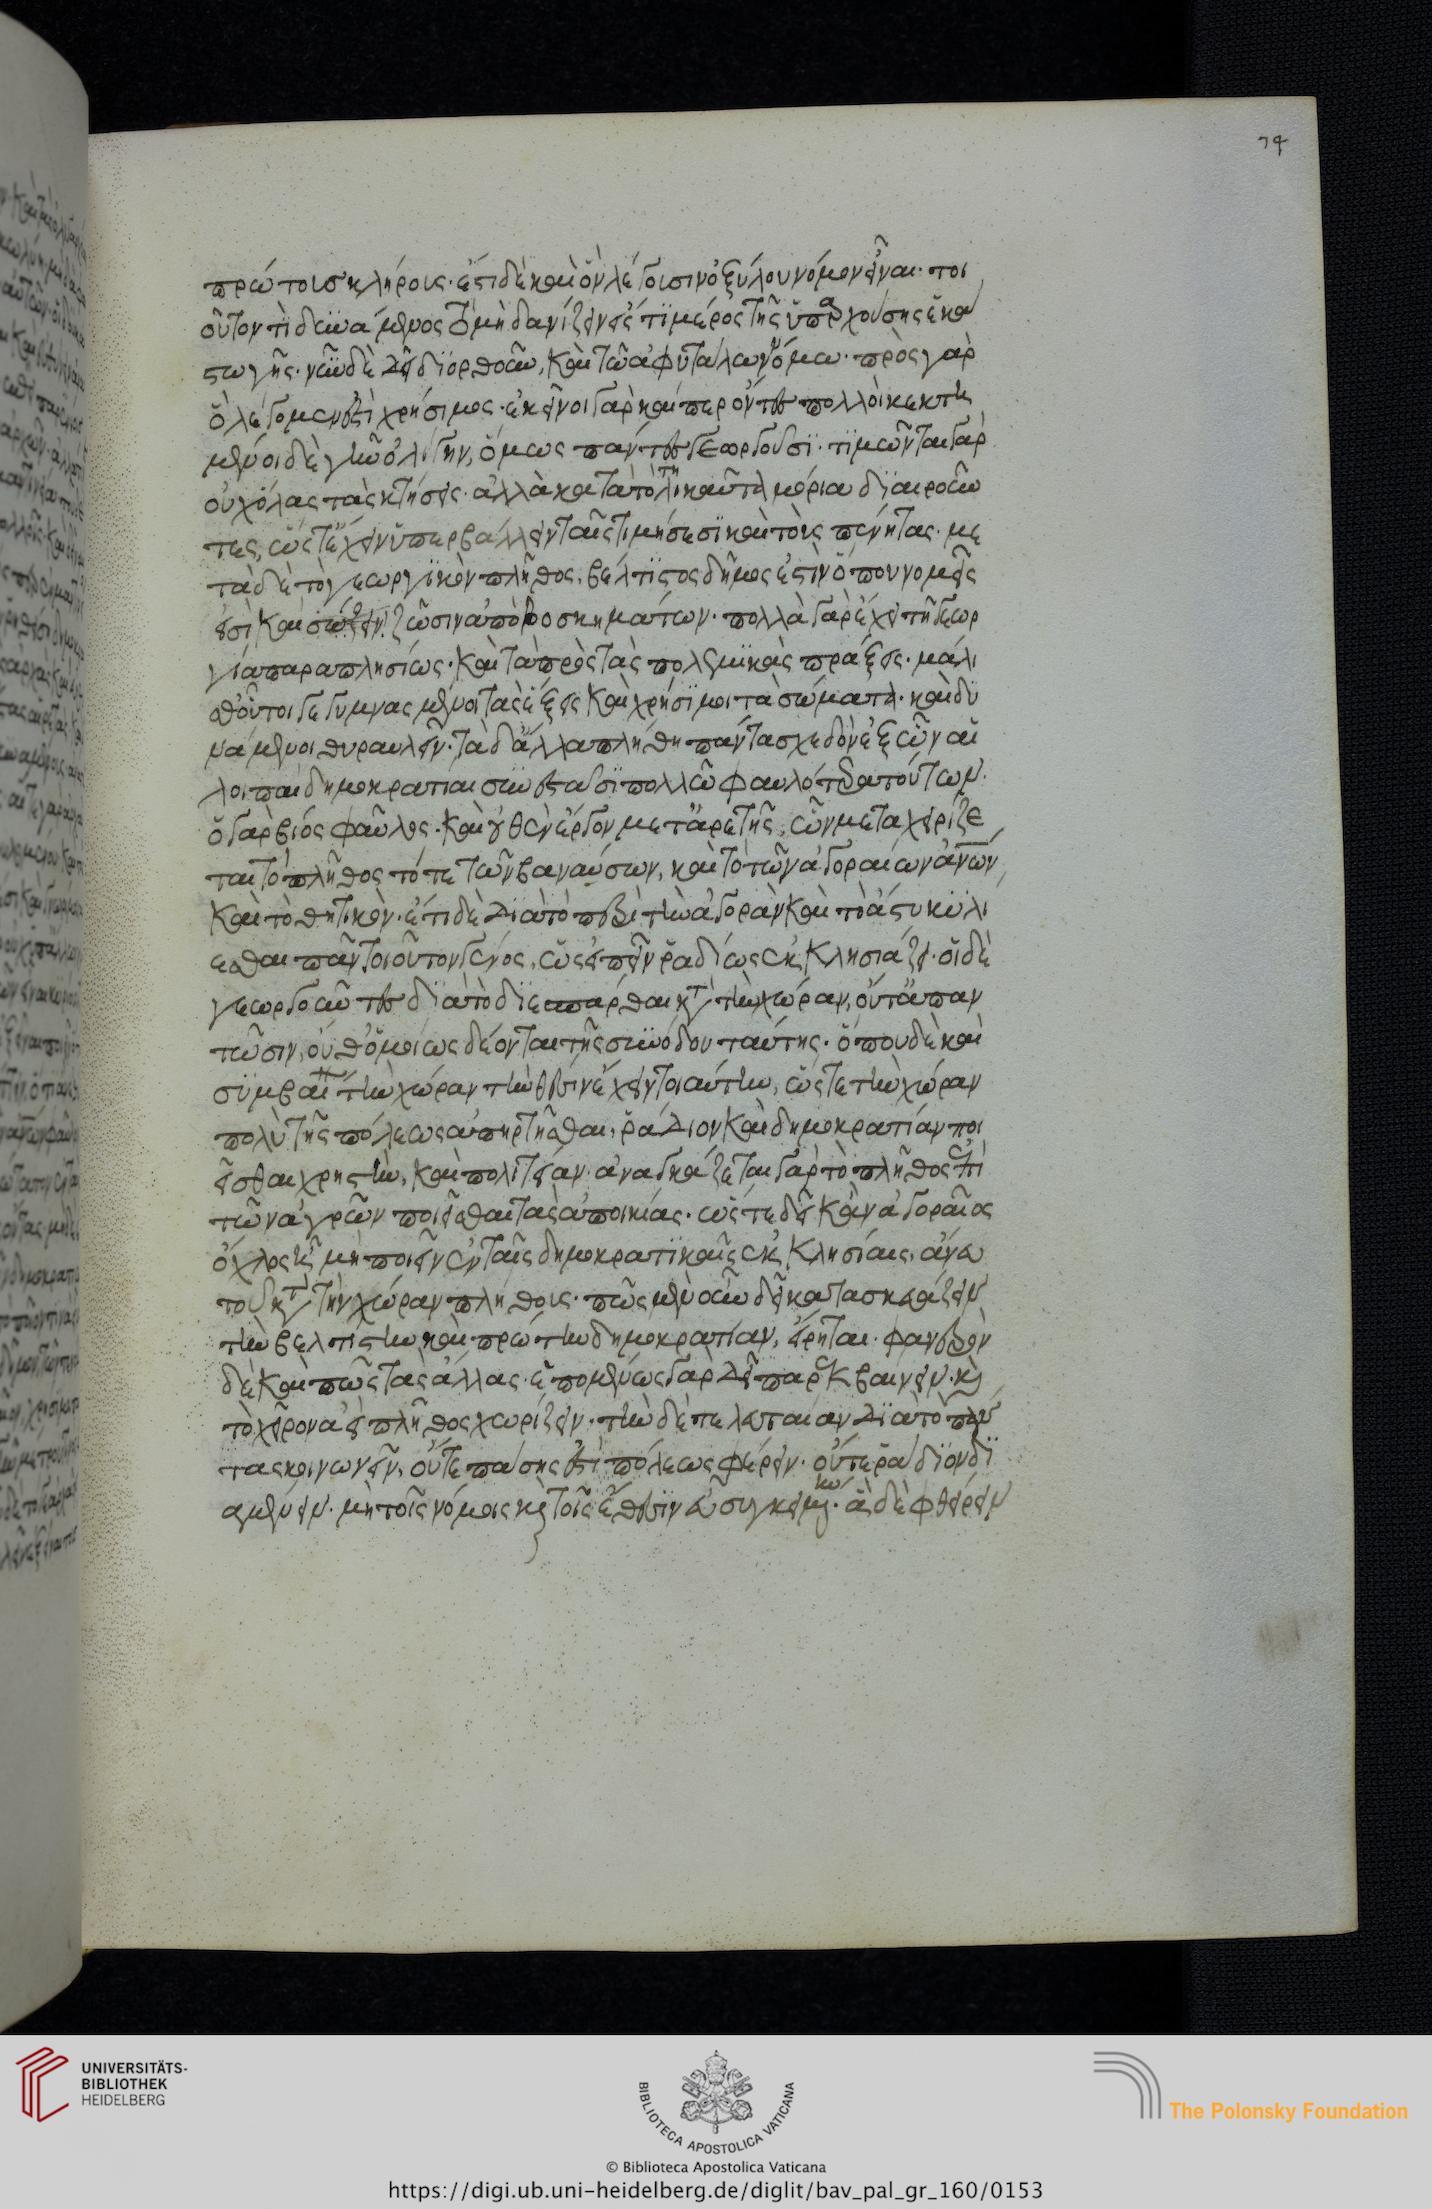 74
πρώτοις κλήροις· ἔστι δὲ καὶ ὃν λέγουσιν ὀξύλου νόμον εἶναι· τοι
οῦτόν τι δυνάμενος τὸ μὴ δανίζειν εἴς τι μέρος τῆς ὑπαρχούσης ἑκά
στω γῆς· νῦν δὲ δεῖ διορθοῦν, καὶ τῶ ἀφυταίων νόμω· πρὸς γὰρ
ὃ λέγομεν ἐστὶ χρήσιμος· ἐκεῖνοι γὰρ καίπερ ὄντες πολλοὶ κεκτη
μένοι δὲ γῆν ὀλίγην, ὅμως πάντες γεωργοῦσι· τιμῶνται γὰρ
οὐχ ὅλας τὰς κτήσεις· ἀλλὰ κατὰ τηλικαῦτα μόρια διαιροῦν
τες, ὥστ' ἔχειν ὑπερβάλλειν ταῖς τιμήσεσι καὶ τοὺς πένητας· με
τὰ δὲ τὸ γεωργικὸν πλῆθος, βέλτιστος δῆμός ἐστιν ὅπου νομεῖς
εἰσὶ καὶ ζῶσιν ἀπὸ βοσκημάτων· πολλὰ γὰρ ἔχει τῆ γεωρ
γία παραπλησίως· καὶ τὰ πρὸς τὰς πολεμικὰς πράξεις· μάλι
σθ' οὗτοι γεγυμνασμένοι τὰς ἕξεις καὶ χρήσιμοι τὰ σώματα· καὶ δυ
νάμενοι θυραυλεῖν· τὰ δ' ἄλλα πλήθη πάντα σχεδὸν ἐξ ὧν αἱ
λοιπαὶ δημοκρατίαι συνεστᾶσι πολλῶ φαυλότερα τούτων·
ὁ γὰρ βίος φαῦλος· καὶ οὐθὲν ἔργον μετ' ἀρετῆς, ὧν μεταχειρίζε
ται τὸ πλῆθος τό τε τῶν βαναύσων, καὶ τὸ τῶν ἀγοραίων ἀνθρώπων,
καὶ τὸ θητικόν· ἔτι δὲ διὰ τὸ περὶ τὴν ἀγορὰν καὶ τὸ ἄστυ κυλί
εσθαι πᾶν τὸ τοιοῦτον γένος, ὡς εἰπεῖν ῥαδίως ἐκκλησιάζει· οἱ δὲ
γεωργοῦντες διὰ τὸ διεσπάρθαι κατὰ τὴν χώραν, οὔτ' ἀπαν
τῶσιν, οὔθ' ὁμοίως δέονται τῆς συνόδου ταύτης· ὅπου δὲ καὶ
συμβαίνει τὴν χώραν τὴν θέσιν ἔχειν τοιαύτην, ὥστε τὴν χώραν
πολὺ τῆς πόλεως ἀπηρτῆσθαι, ῥάδιον καὶ δημοκρατίαν ποι
εῖσθαι χρηστὴν, καὶ πολιτείαν· ἀναγκάζεται γὰρ τὸ πλῆθος ἐπὶ
τῶν ἀγρῶν ποιεῖσθαι τὰς ἀποικίας· ὥστε δεῖ κἂν ἀγοραῖος
ὄχλος ἦ μὴ ποιεῖν ἐν ταῖς δημοκρατικαῖς ἐκκλησίαις, ἄνευ
τοῦ κατὰ τὴν χώραν πλήθους· πῶς μὲν οὖν δεῖ κατασκευάζειν
τὴν βελτίστην καὶ πρώτην δημοκρατίαν, εἴρηται· φανερὸν
δὲ καὶ πῶς τὰς ἄλλας· ἑπομένως γὰρ δεῖ παρεκβαίνειν· καὶ
τὸ χεῖρον ἀεὶ πλῆθος χωρίζειν· τὴν δὲ τελευταίαν διὰ τὸ πάν
τας κοινωνεῖν, οὔτε πάσης ἐστὶ πόλεως φέρειν· οὔτε ῥάδιον δι
αμένειν· μὴ τοῖς νόμοις καὶ τοῖς ἔθεσιν εὖ συγκειμένην· ἃ δὲ φθείρειν
UNIVERSITÄTS-
BIBLIOTHEK
HEIDELBERG
BIBLIOTECA APOSTOLICA VATICANA
The Polonsky Foundation
© Biblioteca Apostolica Vaticana
https://digi.ub.uni-heidelberg.de/diglit/bav_pal_gr_160/0153